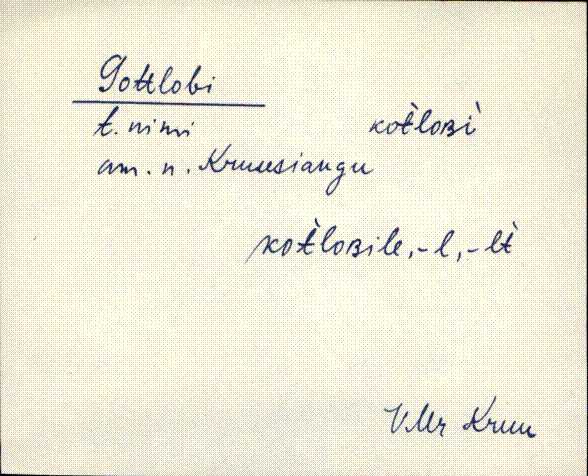 Gottlobi
t. nimi kot̀loʙì
am. n. Kruusiangu
kot̀loʙile, -l, -lt̀
VMr Kruu